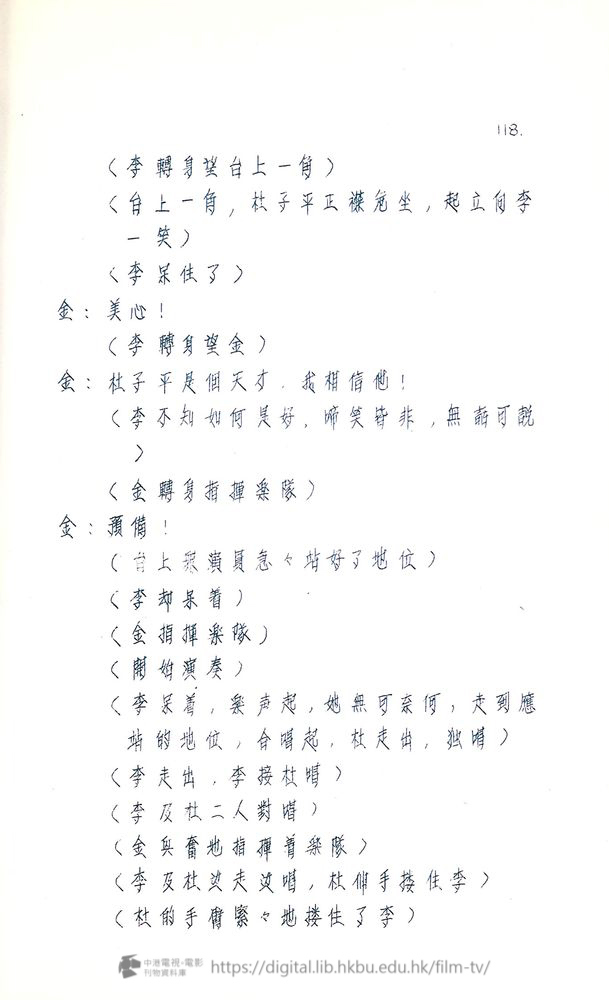 118.
（李轉身望台上一角）
（台上一角，杜子平正襟危坐，起立向李
一笑）
（李呆住了）
金：美心！
（李轉身望金）
金：杜子平是個天才．我相信他！
（李不知如何是好，啼笑皆非，無話可說
）
（金轉身指揮樂隊）
金：預備！
（台上眾演員急々站好了地位）
（李却呆着）
（金指揮樂隊）
（開始演奏）
（李呆着，樂声起，她無可奈何，走到應
站的地位，合唱起，杜走出，独唱）
（李走出，李接杜唱）
（李及杜二人對唱）
（金兴奮地指揮着樂隊）
（李及杜边走边唱，杜伸手搂住李）
（杜的手臂緊々地搂住了李）
中港電視·電影
刊物資料庫
https://digital.lib.hkbu.edu.hk/film-tv/